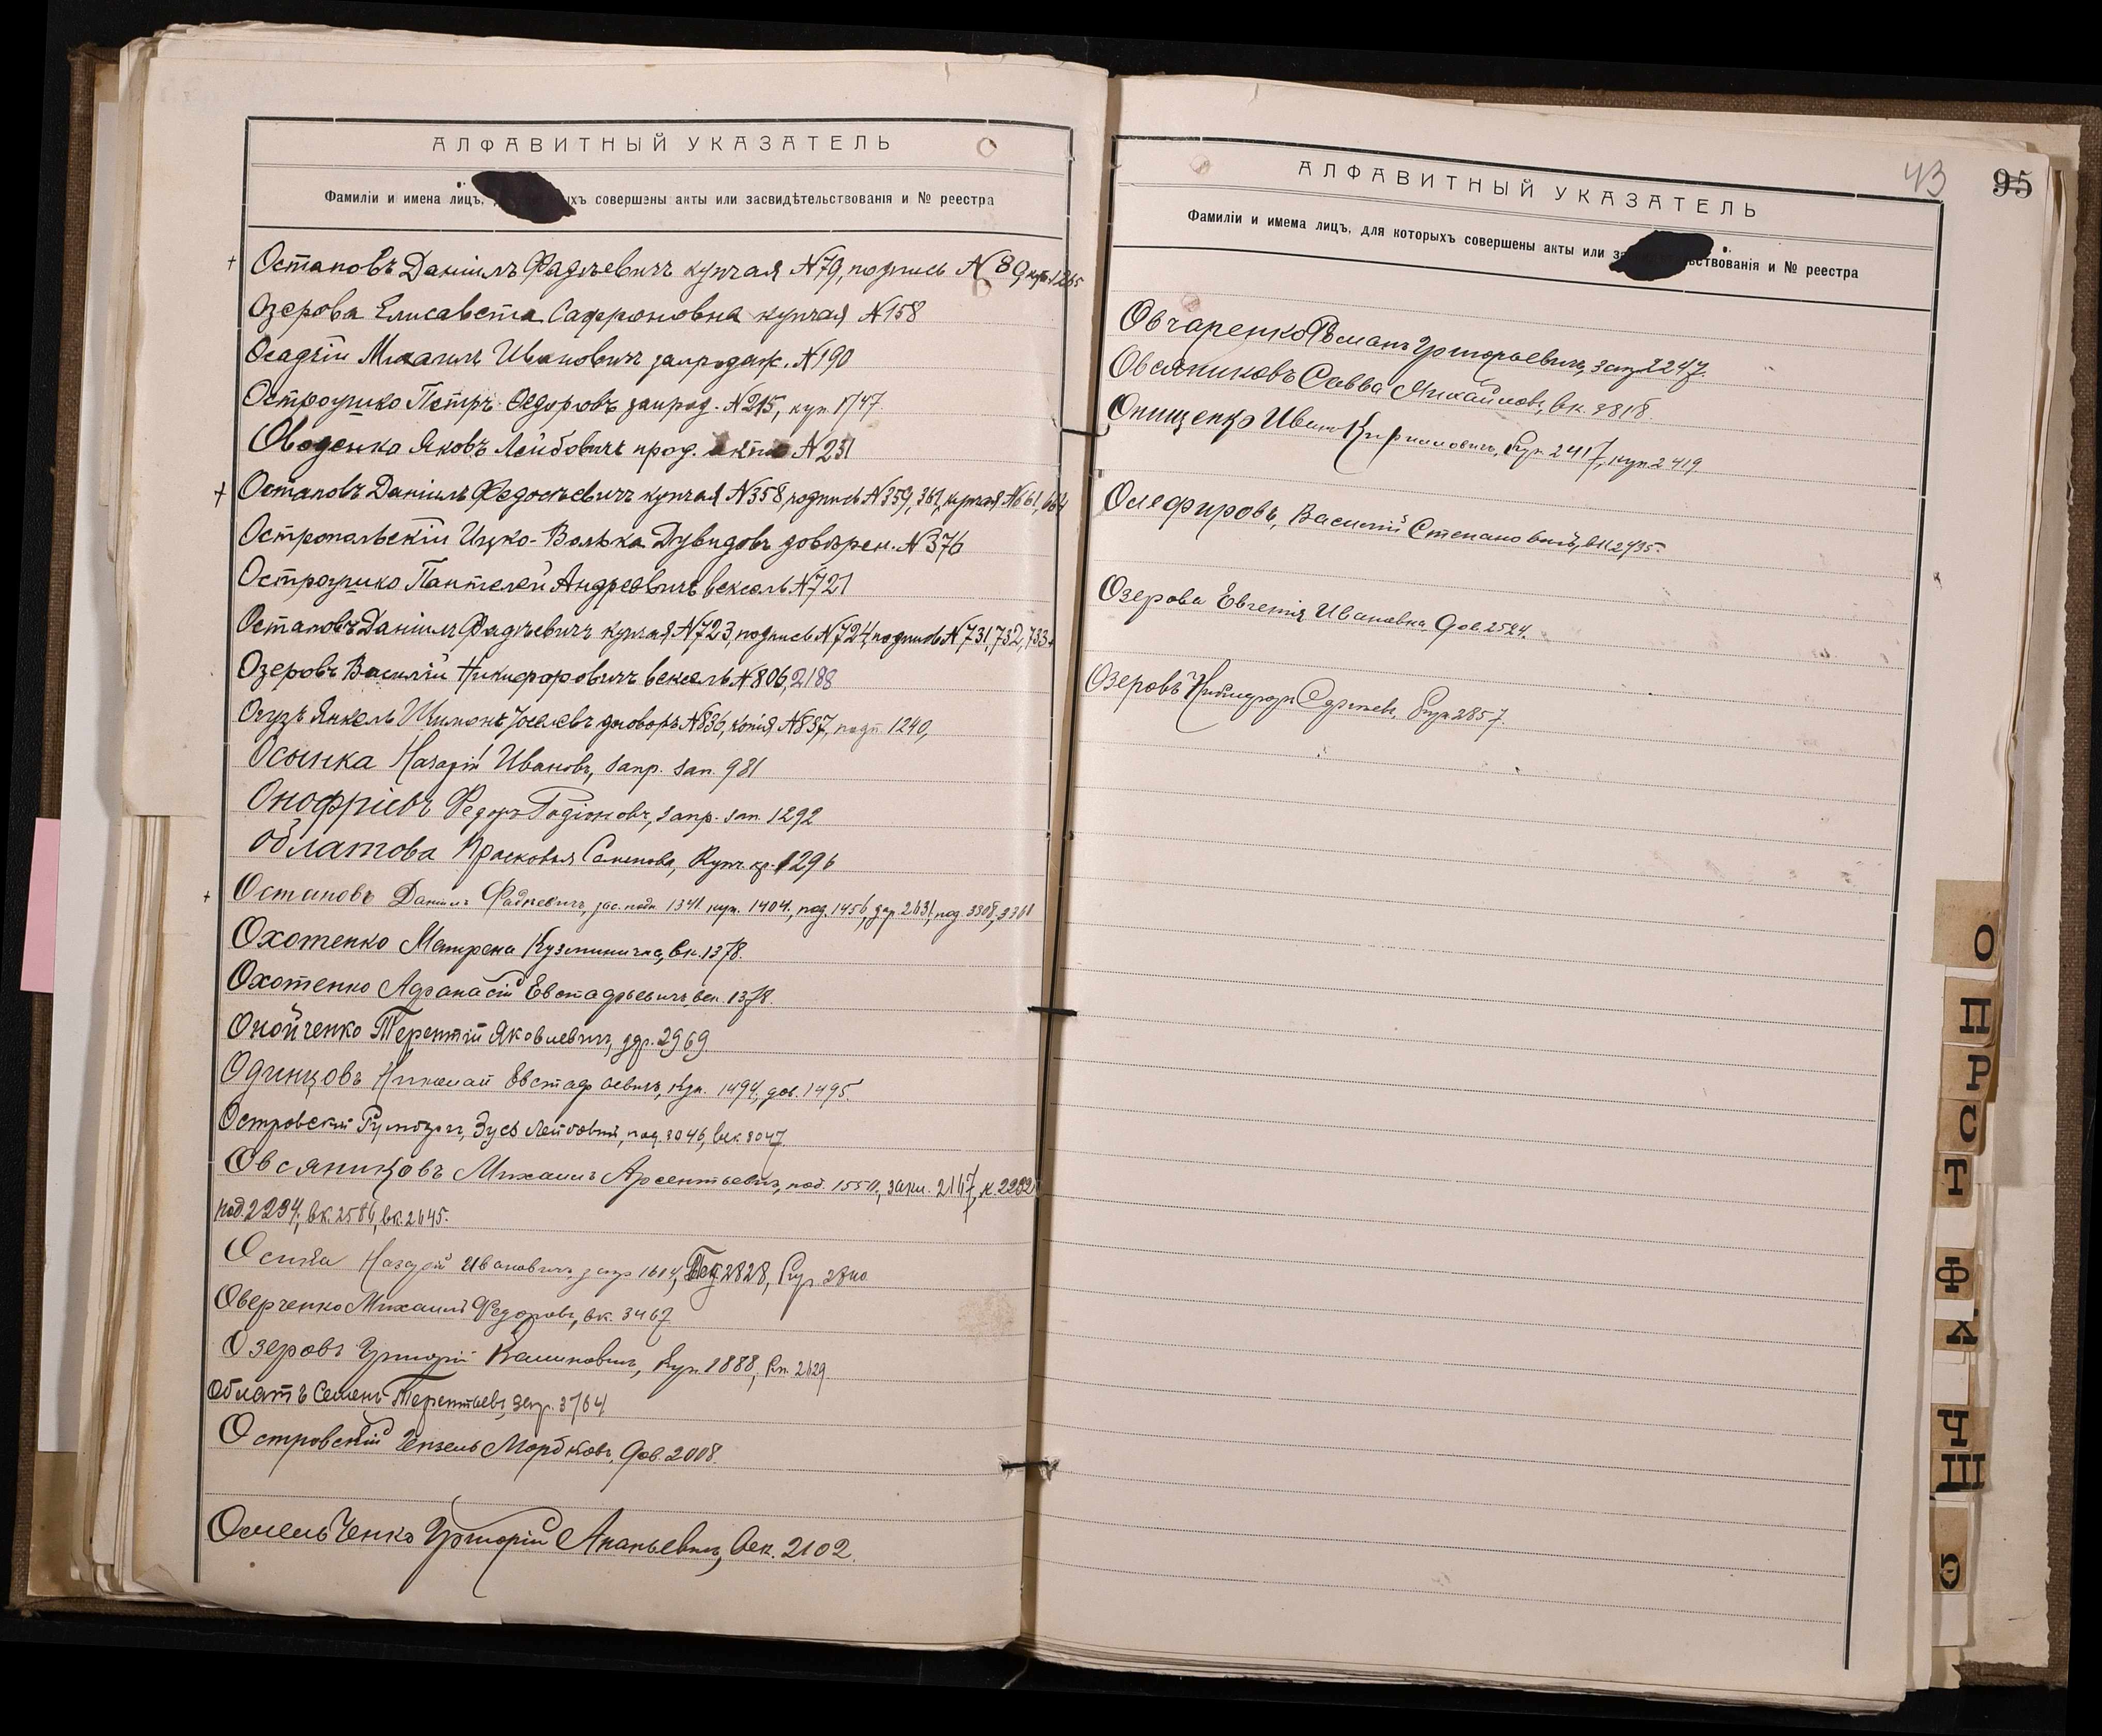 АЛФАВИТНЫЙ УКАЗАТЕЛЬ
Фамиліи и имена лицъ, совершены акты или засвидѣтельствованія и № реестра
Остаповъ Даніилъ Фадѣевичъ купчая №79, подпись №89, 1265
Озерова Елисавета Сафроновна купчая №158
Осадчій Михаилъ Ивановичъ запродаж. №190
Остроушко Петръ Федоровъ запрод. №215, куп. 1747
Оводенко Яковъ Лейбовичъ прод. №231
Остаповъ Даніилъ Федосѣевичъ купчая №358, подпись №359, 361, купчая №661, 664
Остропольскій Ицко-Волька Дувидовъ довѣрен. №376
Остроушко Пантелей Андреевичъ вексель №721
Остаповъ Даніилъ Фадѣевичъ купчая №723, подпись №724, подпись №731, 732, 733
Озеровъ Василій Никифоровичъ вексель №806, 2188
Огузъ Янкель Шимонъ договоръ №836, копія №837, подп. 1240,
Назарій Ивановъ, запр. зап. 981
Онофріевъ Федоръ Родіоновъ, запр. зап. 1292
Облатова Прасковья Семенова, Купч. кр. 1296
Остаповъ Даніилъ Фадѣевичъ, зас. подп. 1341 куп. 1404, под. 1456, дар. 2631, под. 3308, 3361
Охотенко Матрена Кузьминична, вк. 1378.
Охотенко Афанасій Евстафьевичъ, век. 1378.
Онойченко Терентій Яковлевичъ, 2969
Одинцовъ Николай Евстафьевичъ, куп. 1494, дов. 1495.
Островскій Зусь Лейбовъ, под. 3046, век. 3047
Овсяниковъ Михаилъ Арсентьевичъ, под. 1550, 2167, к. 2232
под. 2234, вк. 2586, вк. 2645.
Назарій Ивановичъ, запр. 1604, 2828, Куп.
Оверченко Михаилъ Федоровъ, вк. 3467
Озеровъ Григорій Куп. 1888, 2629
Облатъ Семенъ Терентьевъ, запр. 3764
Островскій Мордковъ, Дов. 2008.
Омельченко Григорій Ананьевичъ, век. 2102.
43
95
АЛФАВИТНЫЙ УКАЗАТЕЛЬ
Фамиліи и имема лицъ, для которыхъ совершены акты или и № реестра
Овчаренко Романъ Григорьевичъ, зап. 2247.
Овсяниковъ Савва Михайловъ, вк. 3818.
Онищенко Иванъ Куп. 2417, куп. 2419
Олефировъ, Василій Степановичъ, вк. 2435.
Озерова Евгенія Ивановна Дов. 2524.
Озеровъ Куп. 2857.
О
П
Р
С
Т
Ф
Х
Ч
Ш
Э